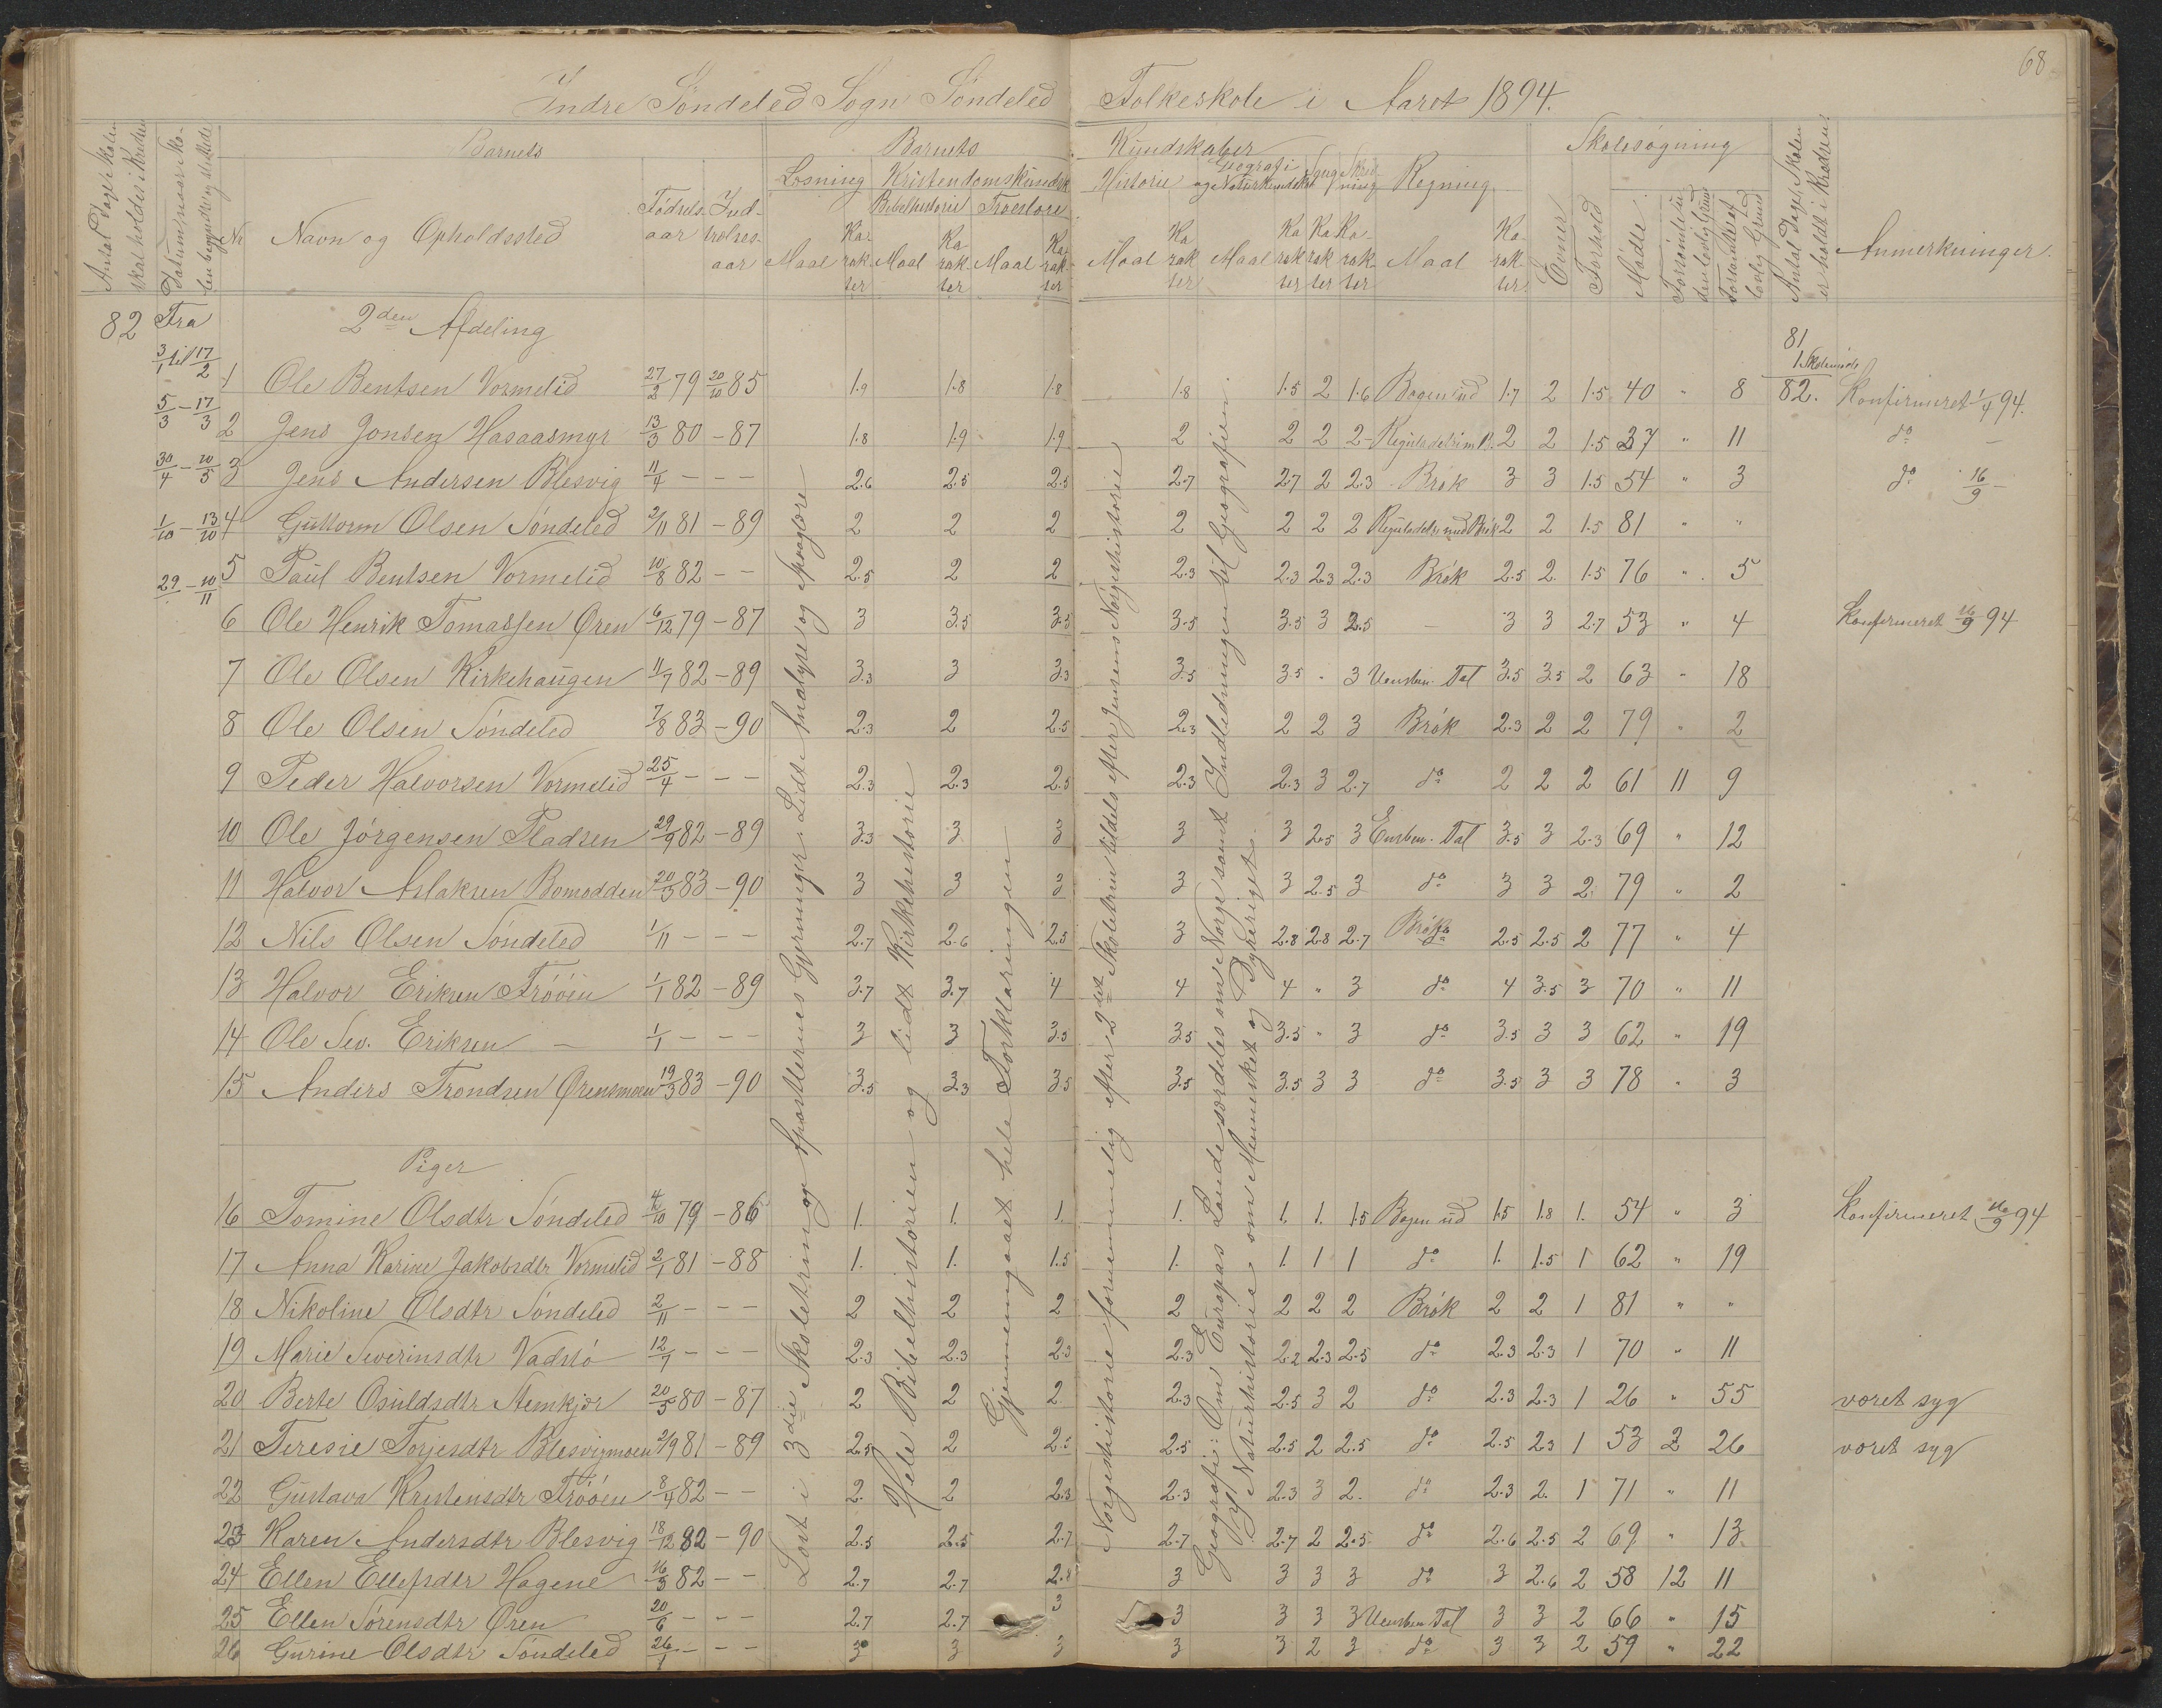 68
Indre Søndeled Sogn Søndeled Folkeskole i Aaret 1894.
Antal Dage Skolen skal holdes i Kredsen
Datum, naar Skolen begyndte og sluttede
Nr
Barnets
Navn og Opholdssted
Fødselsaar
Indtrædelsesaar
Barnets Kundskaber
Læsning Kristendomskundskab Historie Geografi og Naturkundskab Sang Skrivning Regning
Bibelhistorie Troeslære
Maal Karakter Maal Karakter Maal Karakter Maal Karakter Maal Karakter Karakter Karakter Maal Karakter
Evner
Forhold
Skolesøgning
Mødte
Forsømte uden lovlig Grund
Forsømte af lovlig Grund
Antal Dage Skolen er holdt i Kredsen
Anmerkninger.
82 Fra 2den Afdeling
3/1 til 17/2
5/3 - 17/3
30/4 - 10/5
1/10 - 13/10
29 - 10/11
81
1 Skolemøde
82.
1 Ole Bentsen Vormelid 27/2 79 20/10 85 1.9 1.8 1.8 1.8 1.5 2 1.6 Bogen ud 1.7 2 1.5 40 " 8 Konfirmeret 1/4 94.
2 Jens Jonsen Hasaasmyr 13/3 80 - 87 1.8 1.9 1.9 2 2 2 2 Reguladetri m B. 2 2 1.5 37 " 11 do -
3 Jens Andersen Blesvig 11/4 - - - 2.6 2.5 2.5 2.7 2.7 2 2.3 Brøk 3 3 1.5 54 " 3 do 16/9 -
4 Guttorm Olsen Søndeled 2/11 81 - 89 2 2 2 2 2 2 2 Reguladetri med Brøk 2 2 1.5 81 " "
5 Paul Bentsen Vormelid 10/8 82 - - 2.5 2 2 2.3 2.3 2.3 2.3 Brøk 2.5 2. 1.5 76 " 5
6 Ole Henrik Tomassen Øren 6/12 79 - 87 3 3.5 3.5 3.5 3.5 3 2.5 - 3 3 2.7 53 " 4 Konfirmeret 16/9 94
7 Ole Olsen Kirkehaugen 11/7 82 - 89 3.3 3 3.3 3.5 3.5 " 3 Uensben. Tal 3.5 3.5 2 63 " 18
8 Ole Olsen Søndeled 7/8 83 - 90 2.3 2 2.5 2.3 2 2 3 Brøk 2.3 2 2 79 " 2
9 Peder Halvorsen Vormelid 25/4 - - - 2.3 2.3 2.5 2.3 2.3 3 2.7 do 2 2 2 61 11 9
10 Ole Jørgensen Pladsen 29/9 82 - 89 3.3 3 3 3 3 2.5 3 Ensben. Tal 3.5 3 2.3 69 " 12
11 Halvor Aslaksen Bomodden 20/3 83 - 90 3 3 3 3 3 2.5 3 do 3 3 2 79 " 2
12 Nils Olsen Søndeled 1/11 - - - 2.7 2.6 2.5 3 2.8 2.8 2.7 Brøk 2.5 2.5 2 77 " 4
13 Halvor Eriksen Trøøen 1/1 82 - 89 3.7 3.7 4 4 4 " 3 do 4 3.5 3 70 " 11
14 Ole Sev. Eriksen - 1/1 - - - 3 3 3.5 3.5 3.5 " 3 do 3.5 3 3 62 " 19
15 Anders Trondsen Ørensmoen 19/3 83 - 90 3.5 3.3 3.5 3.5 3.5 3 3 do 3.5 3 3 78 " 3
Piger
16 Tomine Olsdtr Søndeled 4/10 79 - 86 1. 1. 1. 1. 1. 1. 1.5 Bogen ud 1.5 1.8 1. 54 " 3 Konfirmeret 16/9 94
17 Anna Karine Jakobsdtr Vormelid 2/1 81 - 88 1. 1. 1.5 1. 1. 1 1 do 1. 1.5 1 62 " 19
18 Nikoline Olsdtr Søndeled 2/11 - - - 2 2 2 2 2 2 2 Brøk 2 2 1 81 " "
19 Marie Severinsdtr Vadstø 12/7 - - - 2.3 2.3 2.3 2.3 2.2 2.3 2.5 do 2.3 2.3 1 70 " 11
20 Berte Osuldsdtr Stemkjær 20/5 80 - 87 2 2 2. 2.3 2.5 3 2 do 2.3 2.3 1 26 " 55 været syg
21 Teresie Torjesdtr Blesvigmoen 2/9 81 - 89 2.5 2 2.5 2.5 2.5 2 2.5 do 2.5 2.3 1 53 2 26 været syg
22 Gustava Kristensdtr Trøøen 8/4 82 - - 2. 2 2.3 2.3 2.3 3 2. do 2.3 2. 1 71 " 11
23 Karen Andersdtr Blesvig 18/12 82 - 90 2.5 2.5 2.7 2.7 2.7 2 2.5 do 2.6 2.5 2 69 " 13
24 Ellen Ellefsdtr Hagene 16/3 82 - - 2.7 2.7 2.8 3 3 3 3 do 3 2.6 2 58 12 11
25 Ellen Sørensdtr Øren 20/6 - - - 2.7 2.7 3 3 3 3 3 Uensben Tal 3 3 2 66 " 15
26 Gurine Olsdtr Søndeled 26/1 - - - 3 3 3 3 3 2 3 do 3 3 2 59 " 22
Læst i 3die Skoletrin og Apostlernes Gjerninger. Lidt Analyse og Sproglære
Hele Bibelhistorien og lidt Kirkehistorie
Gjennemgaaet hele Forklaringen
Norgeshistorie fornemmelig efter 2det Skoletrin tildels efter Jensens Norgeshistorie
Geografi: Om Europas Lande særdeles om Norge samt Indledningen til Geografien.
Af Naturhistorie om Mennesket og Dyreriget.